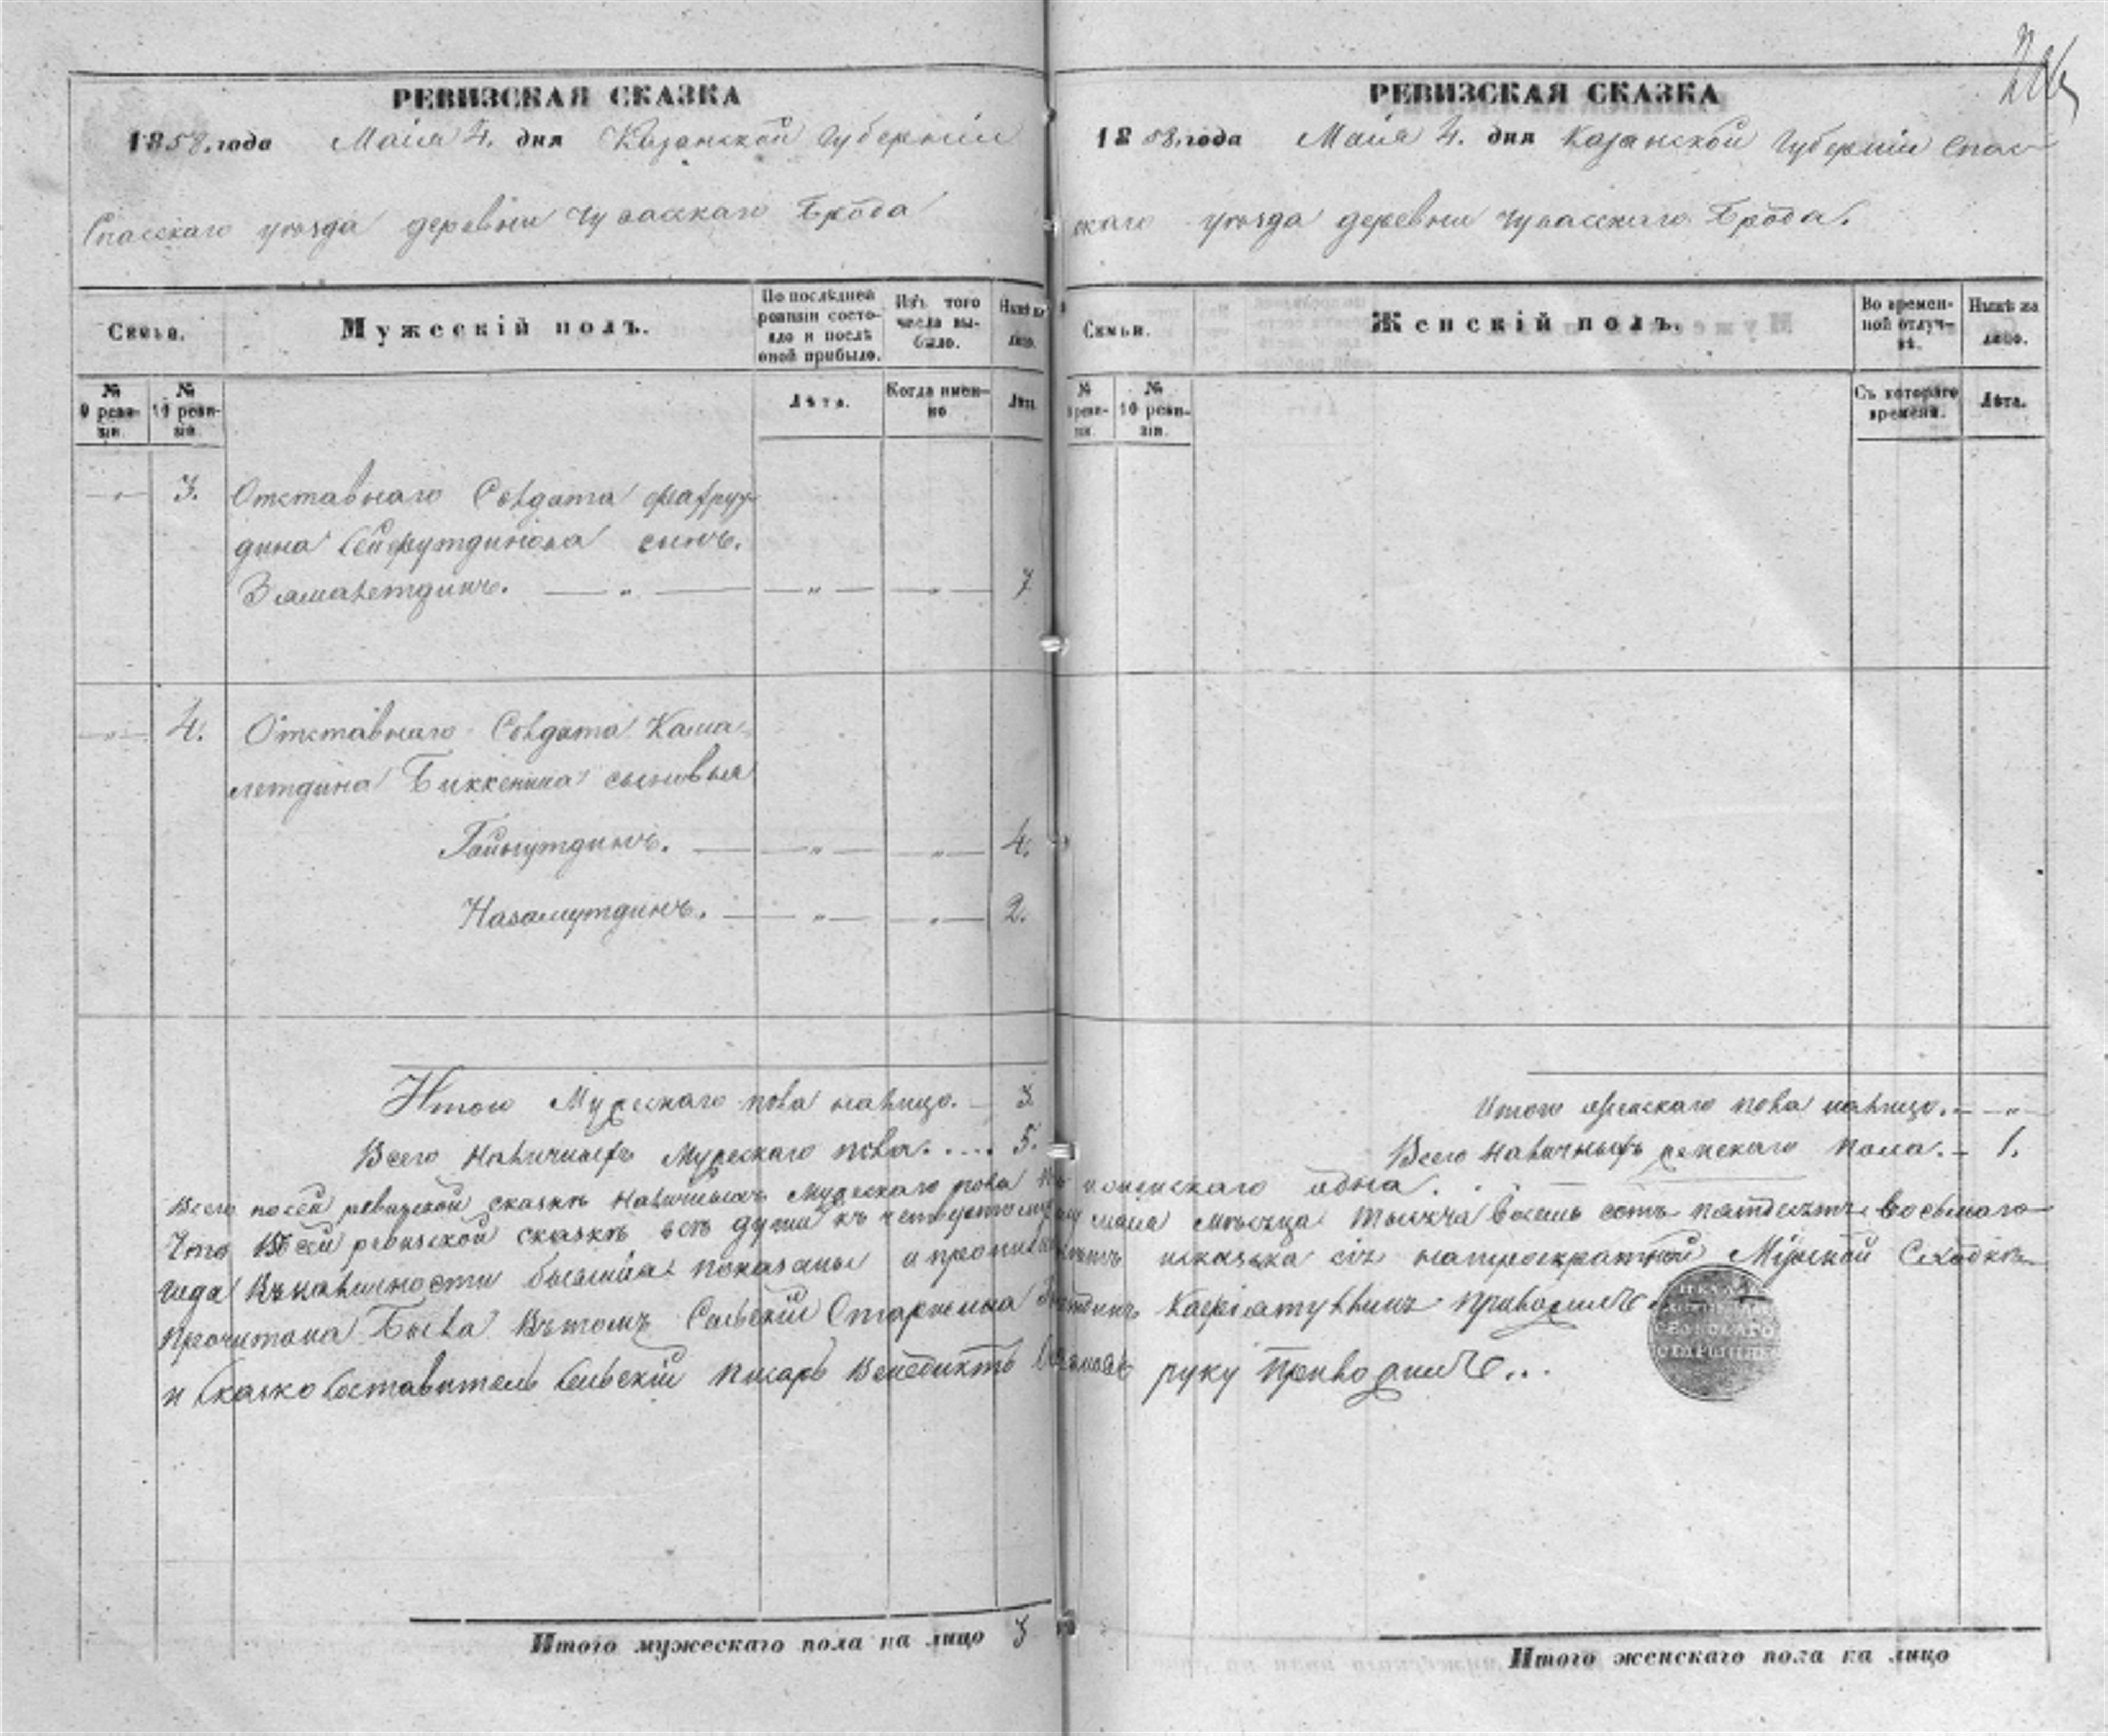 РЕВИЗСКАЯ СКАЗКА
1858. года Маія 4. дня Казанской Губерніи
Спасскаго уѣзда деревни Чувасскаго Брода
Семьи.
Мужескій полъ.
По послѣдней ревизіи состояло и послѣ оной прибыло.
Изъ того числа выбыло.
Нынѣ на лицо.
№ 9 ревизіи.
№ 10 ревизіи.
Лѣта.
Когда именно
Лѣта.
3. Отставнаго Солдата Фахру
дина Сейфутдинова сынъ.
Замалетдинъ. — „ — — „ — — „ — 7
4. Отставнаго Солдата Кама
летдина Биккенина сыновья
Гайнутдинъ. — „ — — „ — 4.
Назамутдинъ. — „ — — „ — 2.
Итого Мужескаго пола налицо. — 3
Всего Наличныхъ Мужескаго пола. .... 5.
РЕВИЗСКАЯ СКАЗКА
1858. года Маія 4. дня Казанской Губерніи Спас
скаго уѣзда деревни Чувасскаго Брода.
Семьи.
Женскій полъ.
Во временной отлучкѣ.
Нынѣ на лицо.
№ 9 ревизіи.
№ 10 ревизіи.
Съ котораго времени.
Лѣта.
Итого женскаго пола налицо. — „ —
Всего Наличныхъ женскаго пола. — 1.
Всего по сей ревизской сказкѣ наличныхъ Мужескаго пола женскаго одна.
Что въ сей ревизской сказкѣ всѣ души къ четвертому мая мѣсяца тысяча восемь сотъ пятдесятъ восьмаго
года въ наличности бывшія показаны и сказка сія на троекратной Мірской Сходкѣ
прочитана была въ томъ Сельскій Старшина приложилъ
и Сказко составитель Сельскій писарь Венедиктъ руку приложилъ...
Итого мужескаго пола на лицо 3
Итого женскаго пола на лицо